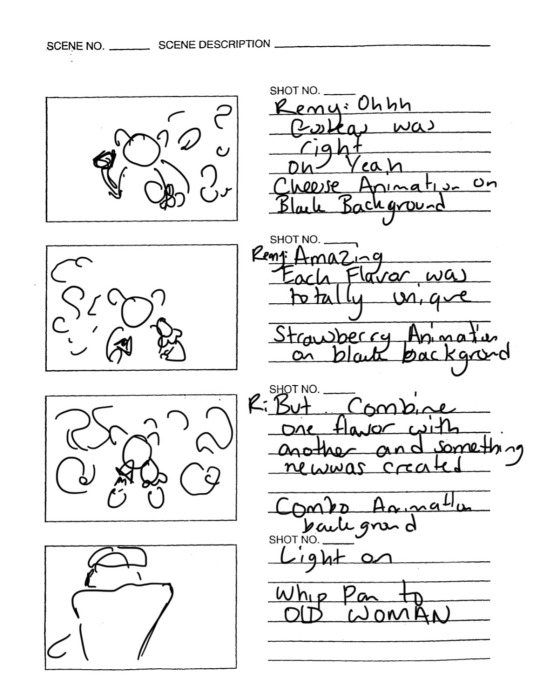 SCENE NO. SCENE DESCRIPTION
SHOT NO.
Remy: Ohhh
Gusteau was
right
oh Yeah
Cheese Animation on
Black Background
SHOT NO.
Remy: Amazing
Each Flavor was
totally unique
Strawberry Animation
on black background
SHOT NO.
R: But Combine
one flavor with
another and something
new was created
Combo Animation
background
SHOT NO.
Light on
Whip Pan to
OLD WOMAN